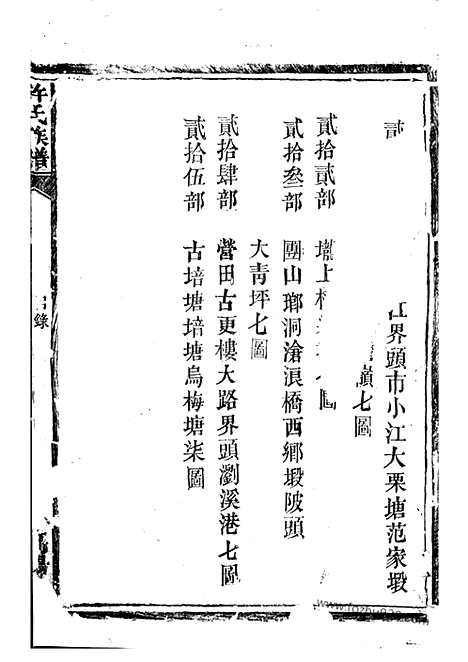 江界頭市小江大栗塘范家塅
嶺七圖
貳拾貳部 壠上
貳拾叁部 團山瑯洞滄浪橋西鄉塅陂頭
大青坪七圖
貳拾肆部 營田古更樓大路界頭瀏溪港七圖
貳拾伍部 古培塘培塘烏梅塘柒圖
許氏族譜
錄